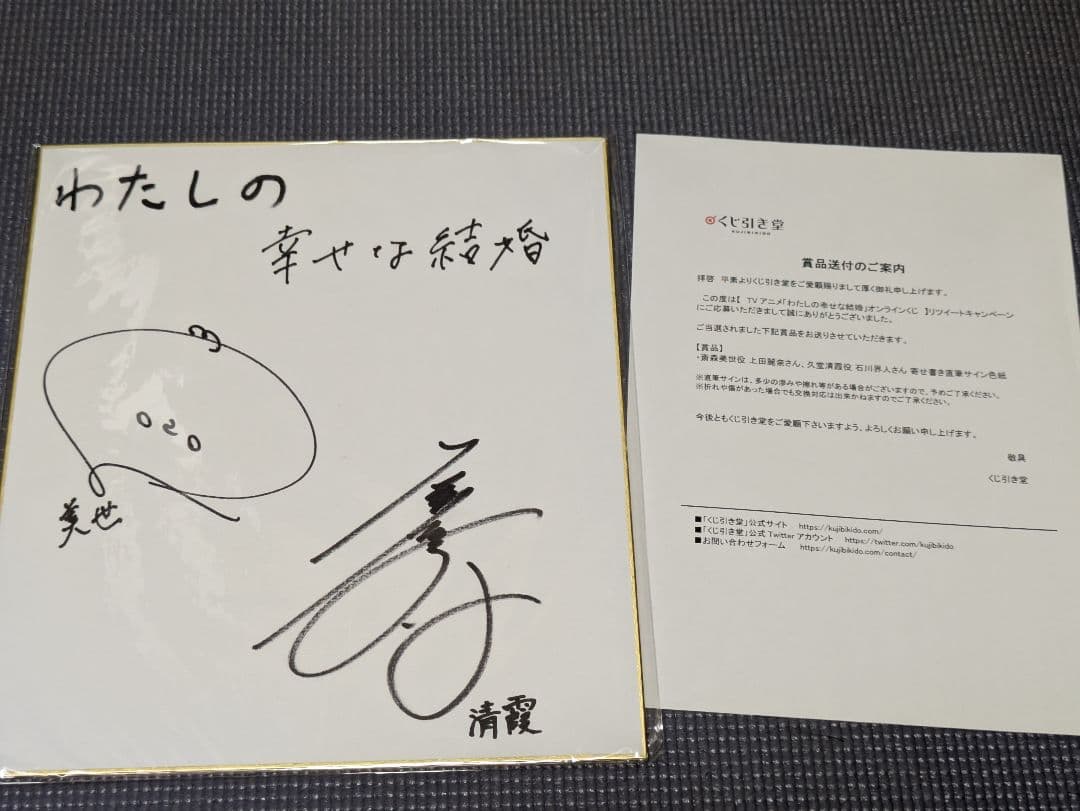 わたしの
幸せな結婚
美世
清霞
くじ引き堂
KUJIBIKIDO
賞品送付のご案内
拝啓　平素よりくじ引き堂をご愛顧賜りまして厚く御礼申し上げます。
この度は【　TVアニメ「わたしの幸せな結婚」オンラインくじ　】リツイートキャンペーン
にご応募いただきまして誠にありがとうございました。
ご当選されました下記賞品をお送りさせていただきます。
【賞品】
・斎森美世役 上田麗奈さん、久堂清霞役 石川界人さん 寄せ書き直筆サイン色紙
※直筆サインは、多少の滲みや擦れ等がある場合がございますので、予めご了承ください。
※折れや傷があった場合でも交換対応は出来かねますのでご了承ください。
今後ともくじ引き堂をご愛顧下さいますよう、よろしくお願い申し上げます。
敬具
くじ引き堂
■「くじ引き堂」公式サイト　https://kujibikido.com/
■「くじ引き堂」公式 Twitter アカウント　https://twitter.com/kujibikido
■お問い合わせフォーム　https://kujibikido.com/contact/